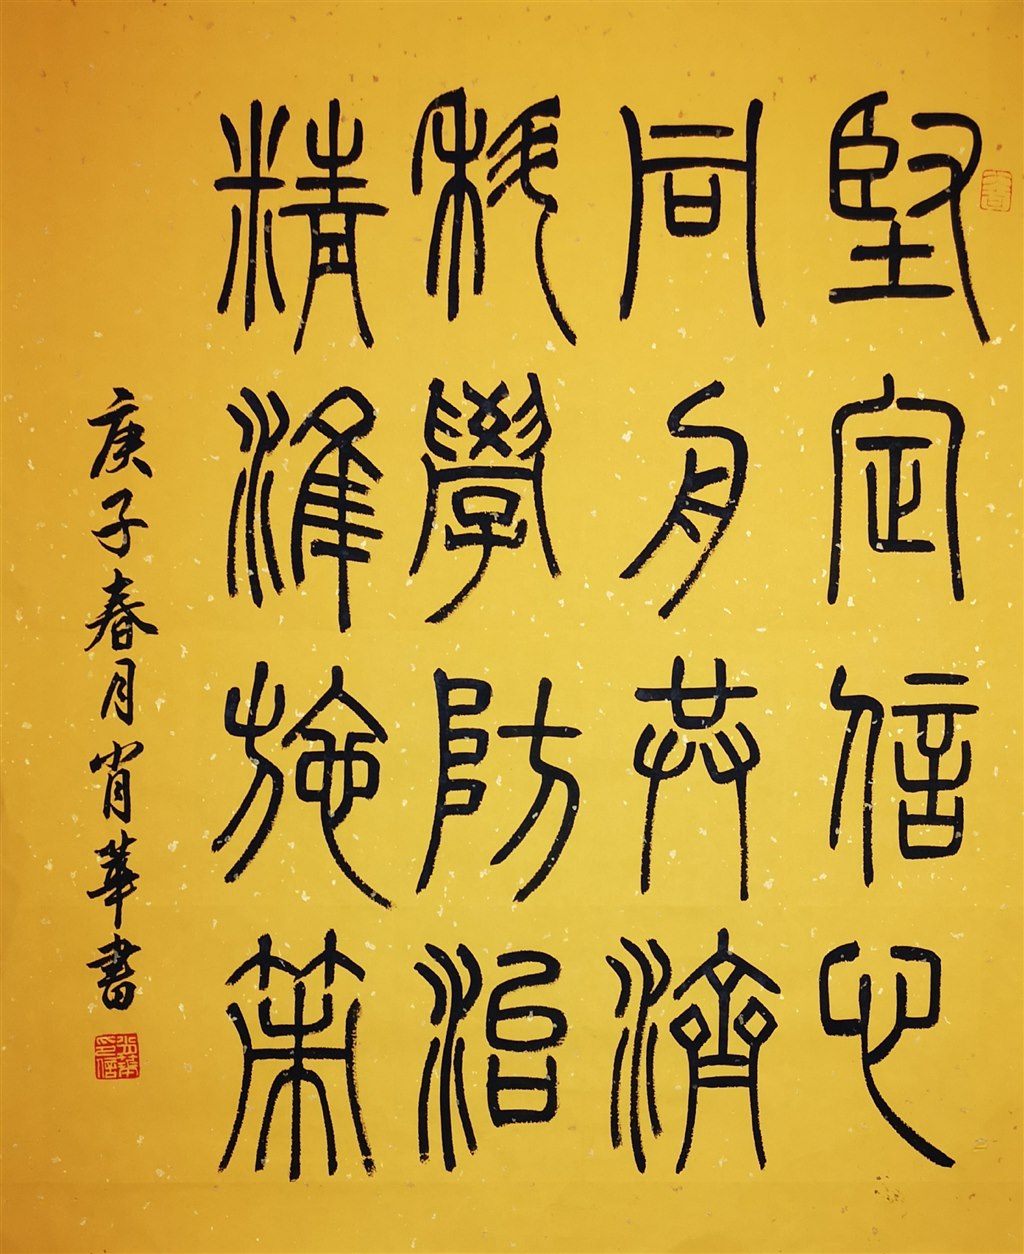 堅定信心
同舟共濟
科學防治
精準施策
庚子春月肖華書
肖華印信